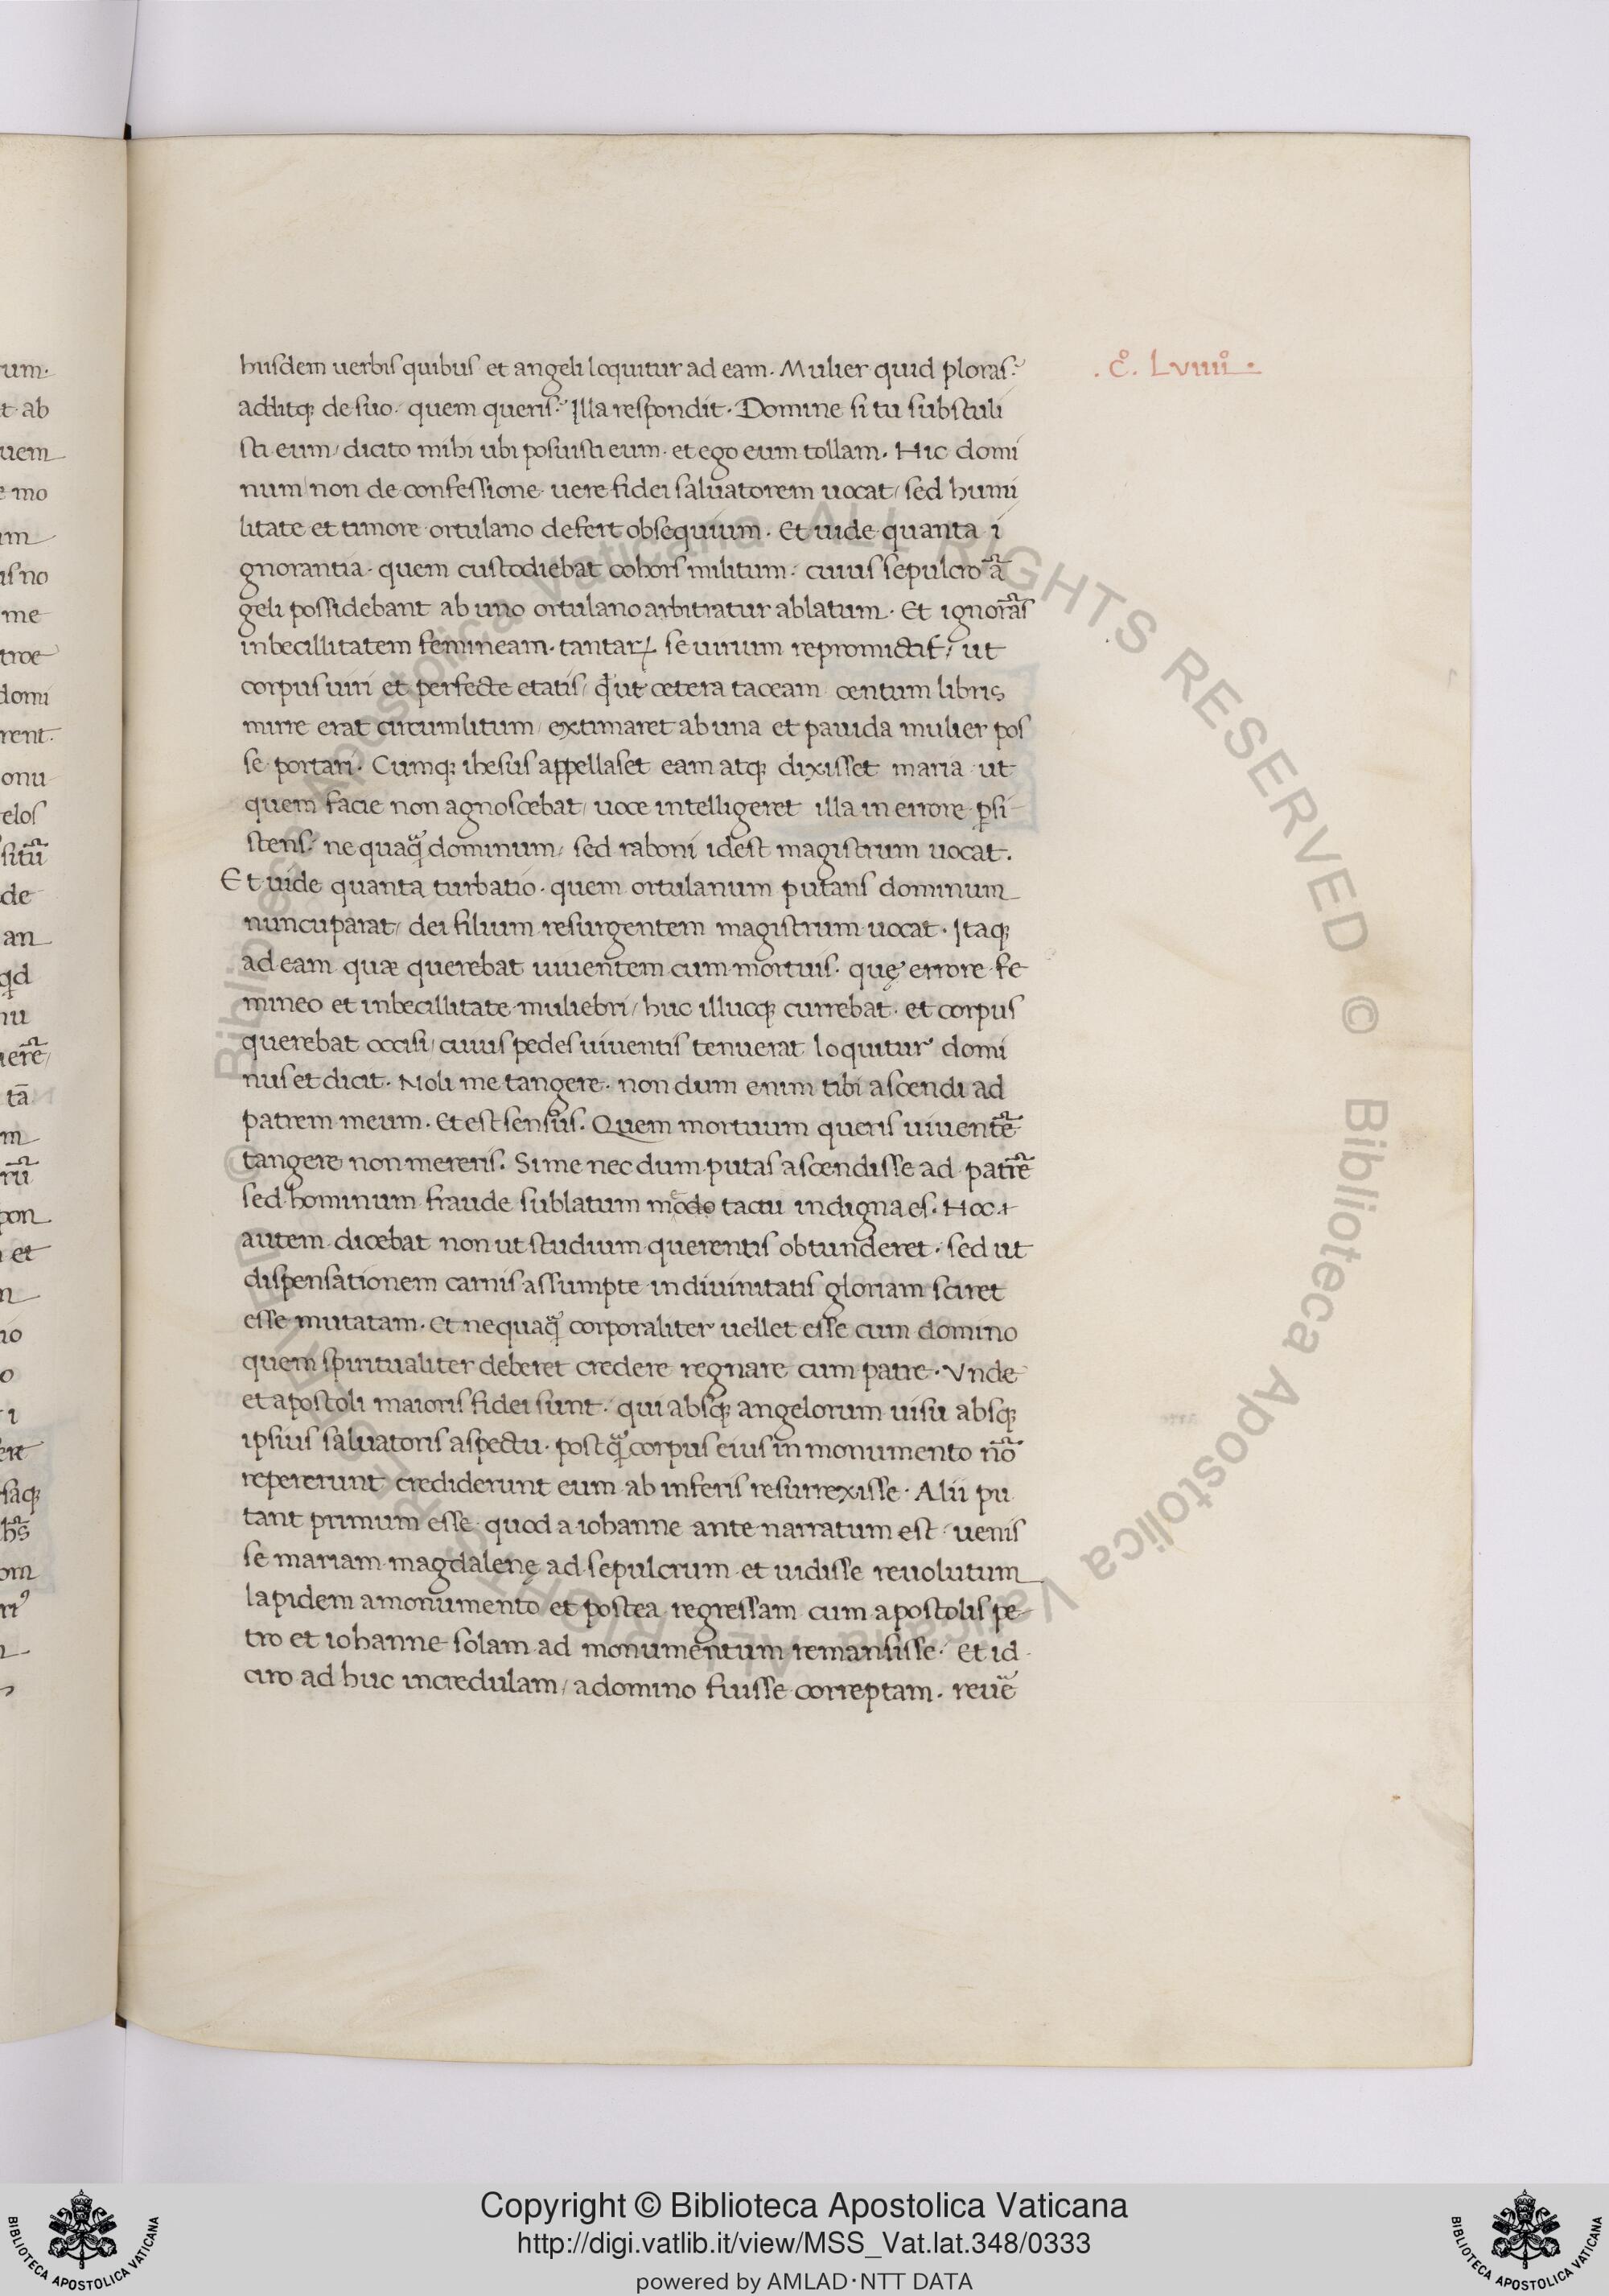 um.
t ab
uem
e mo
m
is no
me
troe
domi
rent.
onu
elos
sitū
de
an
qd
nu
erē
tā
m
rū
pon
et
n
no
o
i
ert
saq;
hs̄
om
huisdem uerbis quibus et angeli loquitur ad eam. Mulier quid ploras?
additq; de suo. quem queris? Illa respondit. Domine si tu substuli
sti eum/ dicito mihi ubi posuisti eum. et ego eum tollam. Hic domi
num/ non de confessione uere fidei saluatorem uocat/ sed humi
litate et timore ortulano defert obsequium. Et uide quanta i
gnorantia. quem custodiebat cohors militum. cuius sepulcro ā
geli possidebant ab uno ortulano arbitratur ablatum. Et ignorās
inbecillitatem femineam. tantaꝝ se uirium repromictit/ ut
corpus uiri et perfecte etatis/ qđ ut cetera taceam centum libris
mirre erat circumlitum/ extimaret ab una et pauida mulier pos
se portari. Cumq; ihesus appellaset eam atq; dixisset maria ut
quem facie non agnoscebat/ uoce intelligeret illa in errore ꝑsi
stens. ne quaꝗ̃ dominum/ sed raboni idest magistrum uocat.
Et uide quanta turbatio. quem ortulanum putans dominum
nuncuparat/ dei filium resurgentem magistrum uocat. Itaq;
ad eam quæ querebat uiuentem cum mortuis. quę errore fe
mineo et inbecillitate muliebri/ huc illucq; currebat. et corpus
querebat occisi/ cuius pedes uiuentis tenuerat loquitur domi
nus et dicit. Noli me tangere. non dum enim tibi ascendi ad
patrem meum. Et est sensus. Quem mortuum queris uiuentē
tangere non mereris. Si me nec dum putas ascendisse ad patrē
sed hominum fraude sublatum modo tactu indigna es. Hoc
autem dicebat non ut studium querentis obtunderet. sed ut
dispensationem carnis assumpte in diuinitatis gloriam sciret
esse mutatam. Et nequaꝗ̃ corporaliter uellet esse cum domino
quem spiritualiter deberet credere regnare cum patre. Vnde
et apostoli maioris fidei sunt. qui absq; angelorum uisu absq;
ipsius saluatoris aspectu. postꝗ̃ corpus eius in monumento nō
repererunt crediderunt eum ab inferis resurrexisse. Alii pu
tant primum esse quod a iohanne ante narratum est. uenis
se mariam magdalenę ad sepulcrum et uidisse reuolutum
lapidem a monumento et postea regressam cum apostolis pe
tro et iohanne solam ad monumentum remansisse. Et id
circo ad huc incredulam/ a domino fuisse correptam. reuē
.c̊. Lviiii̊.
© Biblioteca Apostolica Vaticana ALL RIGHTS RESERVED © Biblioteca Apostolica Vaticana ALL RIGHTS RESERVED
BIBLIOTECA APOSTOLICA VATICANA
Copyright © Biblioteca Apostolica Vaticana
http://digi.vatlib.it/view/MSS_Vat.lat.348/0333
powered by AMLAD·NTT DATA
BIBLIOTECA APOSTOLICA VATICANA